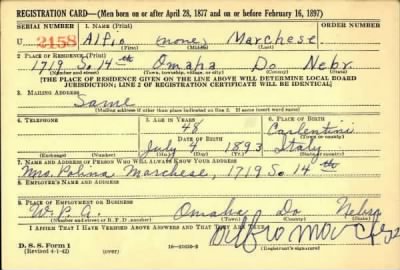 REGISTRATION CARD—(Men born on or after April 28, 1877 and on or before February 16, 1897)
SERIAL NUMBER 1. NAME (Print) ORDER NUMBER
U 2158 Alfio (none) Marchese
(First) (Middle) (Last)
2. PLACE OF RESIDENCE (Print)
1719 So 14th Omaha Do Nebr.
(Number and street) (Town, township, village, or city) (County) (State)
[THE PLACE OF RESIDENCE GIVEN ON THE LINE ABOVE WILL DETERMINE LOCAL BOARD
JURISDICTION; LINE 2 OF REGISTRATION CERTIFICATE WILL BE IDENTICAL]
3. MAILING ADDRESS
Same
[Mailing address if other than place indicated on line 2. If same insert word same]
4. TELEPHONE 5. AGE IN YEARS 6. PLACE OF BIRTH
48 Carlentini
DATE OF BIRTH (Town or county)
July 4 1893 Italy
(Exchange) (Number) (Mo.) (Day) (Yr.) (State or country)
7. NAME AND ADDRESS OF PERSON WHO WILL ALWAYS KNOW YOUR ADDRESS
Mrs. Marchese, 1719 So 14th
8. EMPLOYER'S NAME AND ADDRESS
9. PLACE OF EMPLOYMENT OR BUSINESS
W.P.A. Omaha Do Nebr
(Number and street or R. F. D. number) (Town) (County) (State)
I AFFIRM THAT I HAVE VERIFIED ABOVE ANSWERS AND THAT THEY ARE TRUE.
D. S. S. Form 1
(Revised 4-1-42) (over) (Registrant's signature)